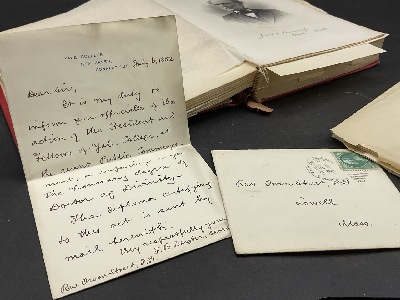 YALE COLLEGE
NEW HAVEN,
CONNECTICUT
July 6, 1886
Dear Sir,
It is my duty to
inform you officially of the
action of the President and
Fellows of Yale College, at
the recent Public Commencement
in conferring
the Honorary degree of
Doctor of Divinity.
The Diploma certifying
to this act is sent by
mail herewith.
Very respectfully yours
F. B. Dexter, Secretary
Rev Owen Street, D.D.
Rev. Owen Street, D.D.
Lowell
Mass.